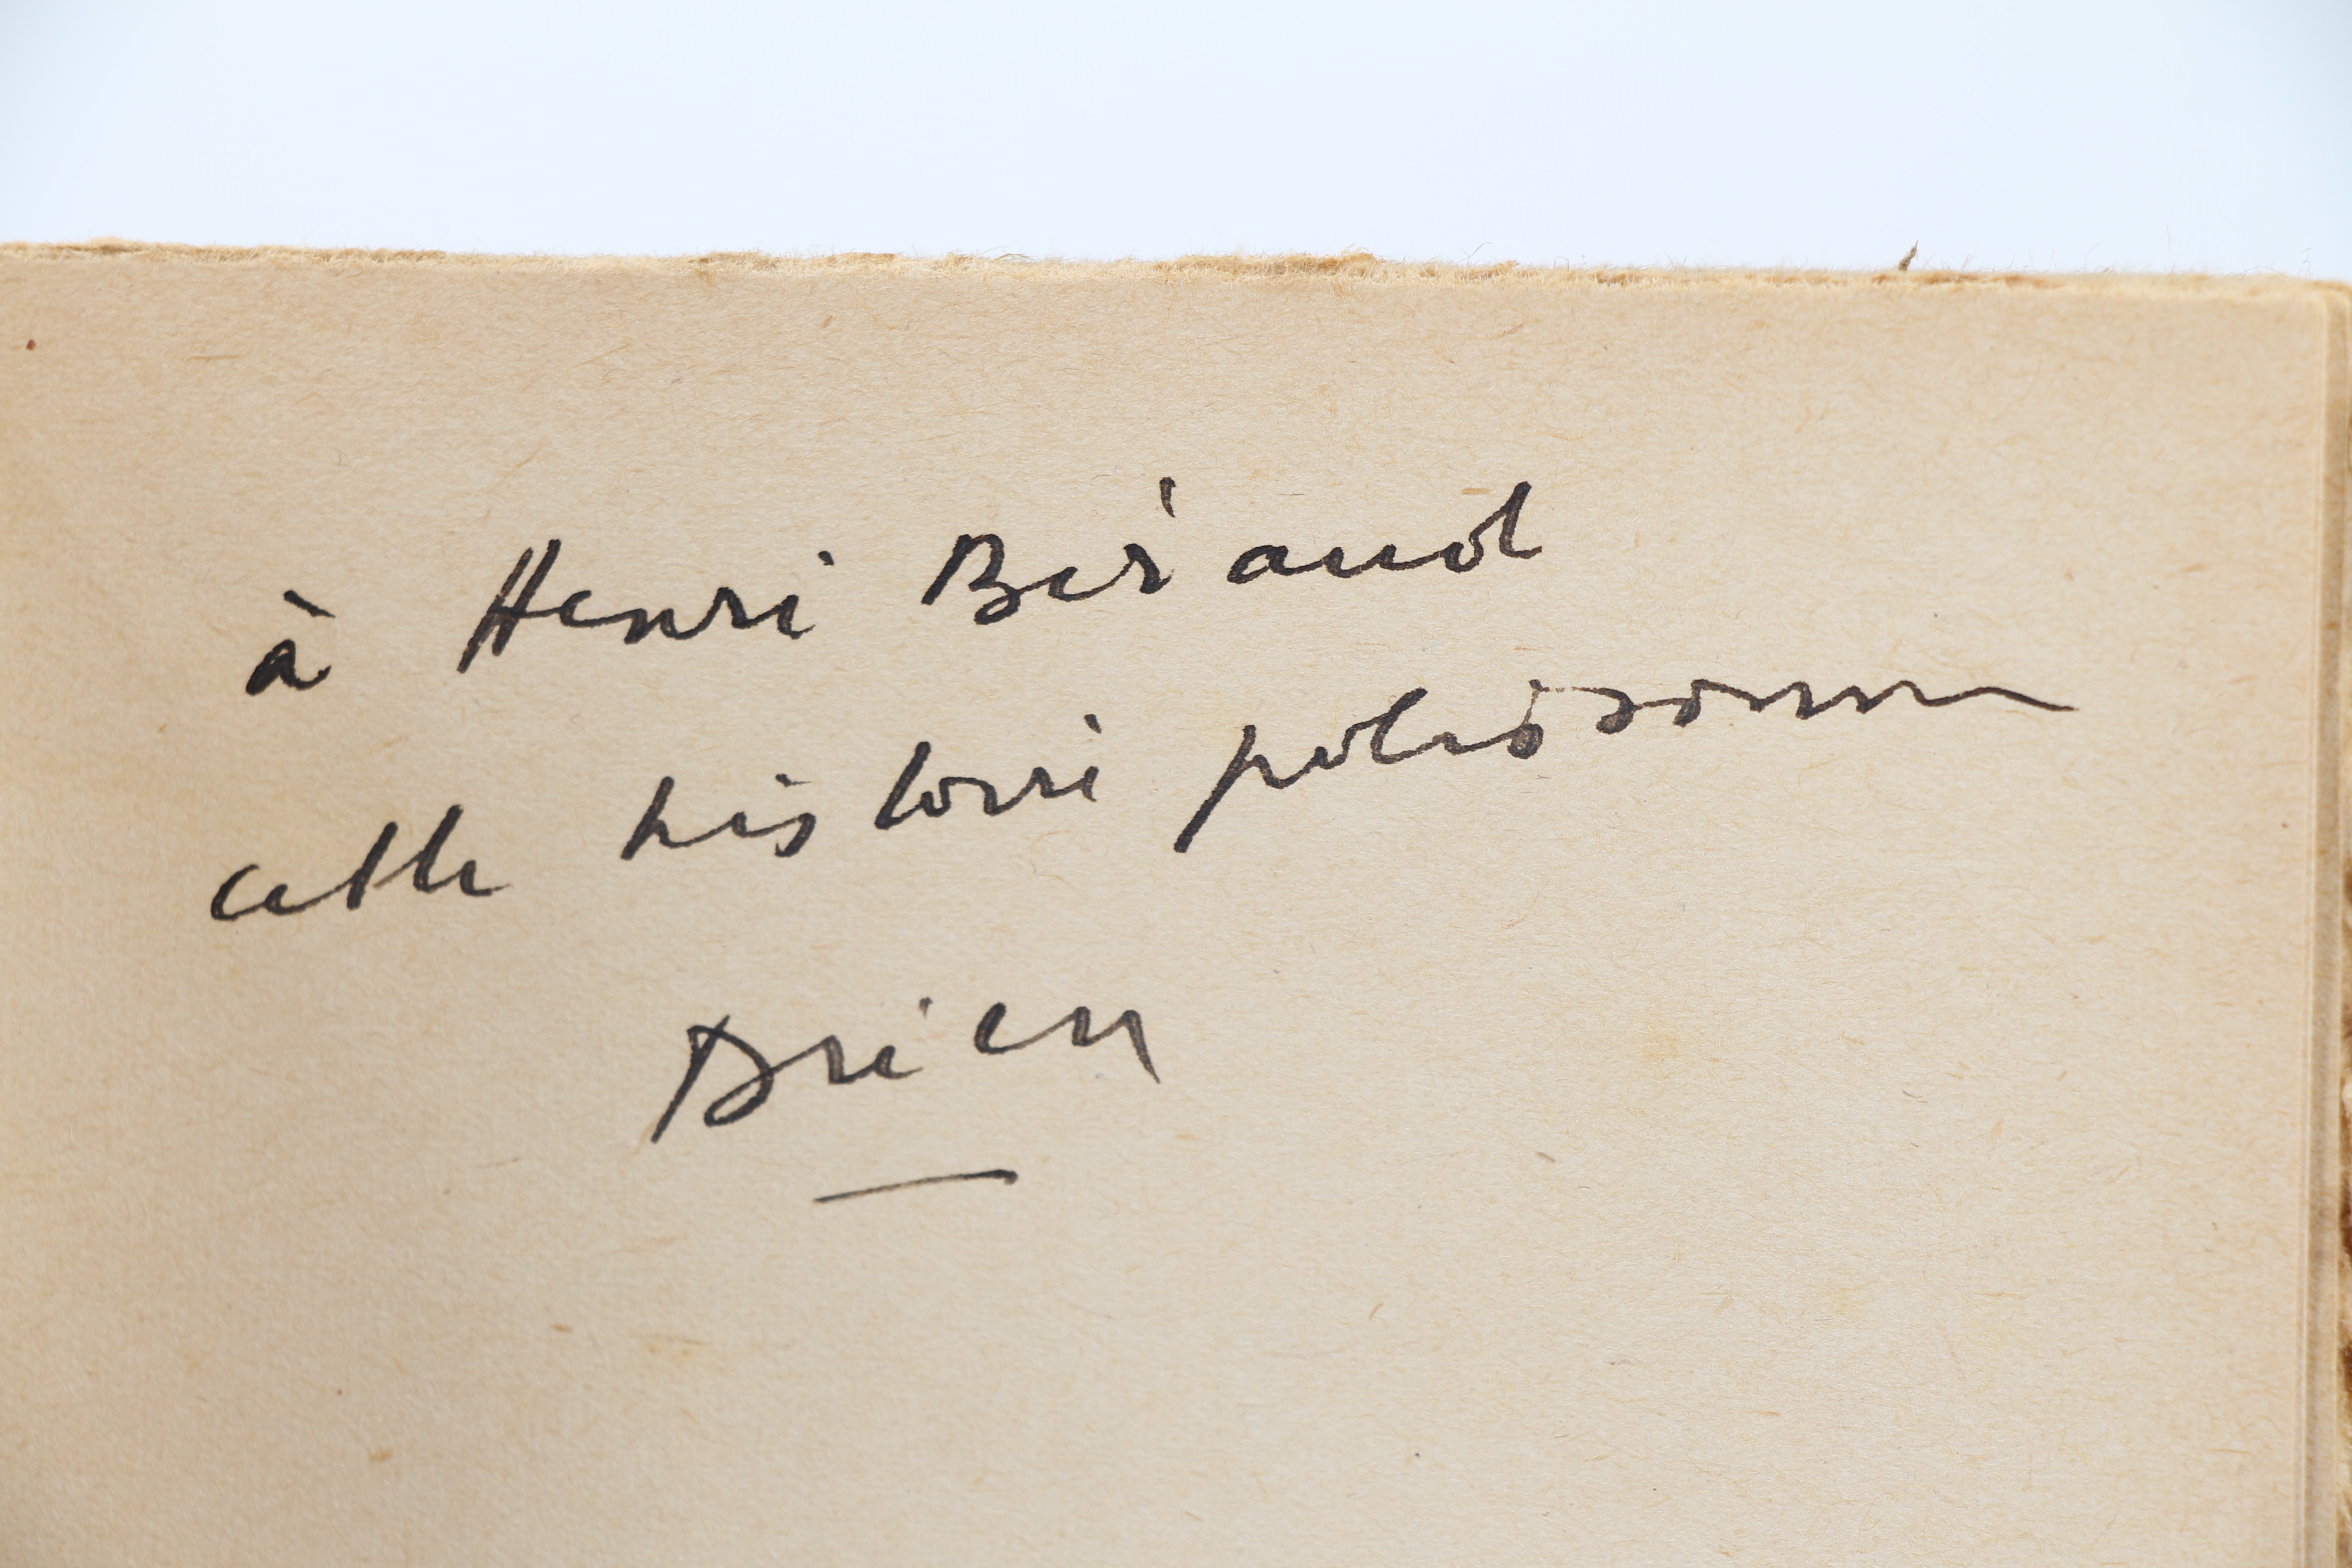 à Henri Béraud
cette histoire polissonne
Drieu